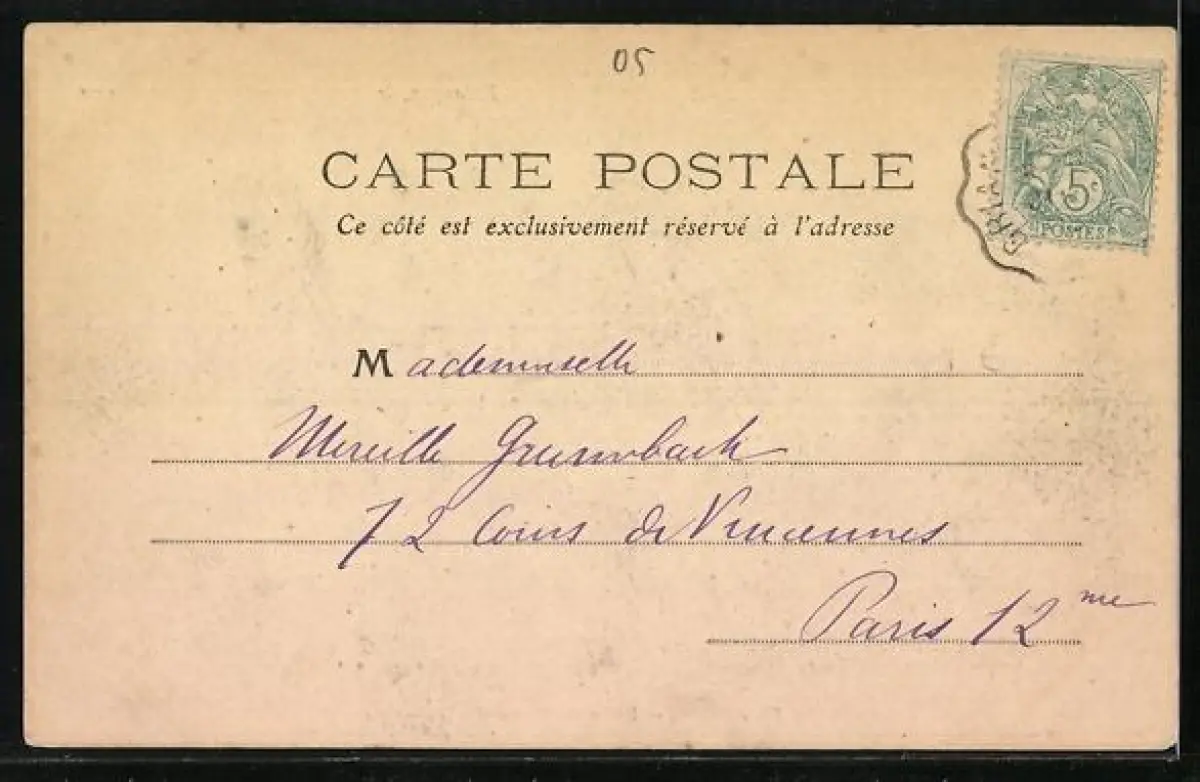 05
CARTE POSTALE
Ce côté est exclusivement réservé à l'adresse
5c
POSTES
Mademoiselle
Mireille Grumbach
72 Cours de Vincennes
Paris 12me